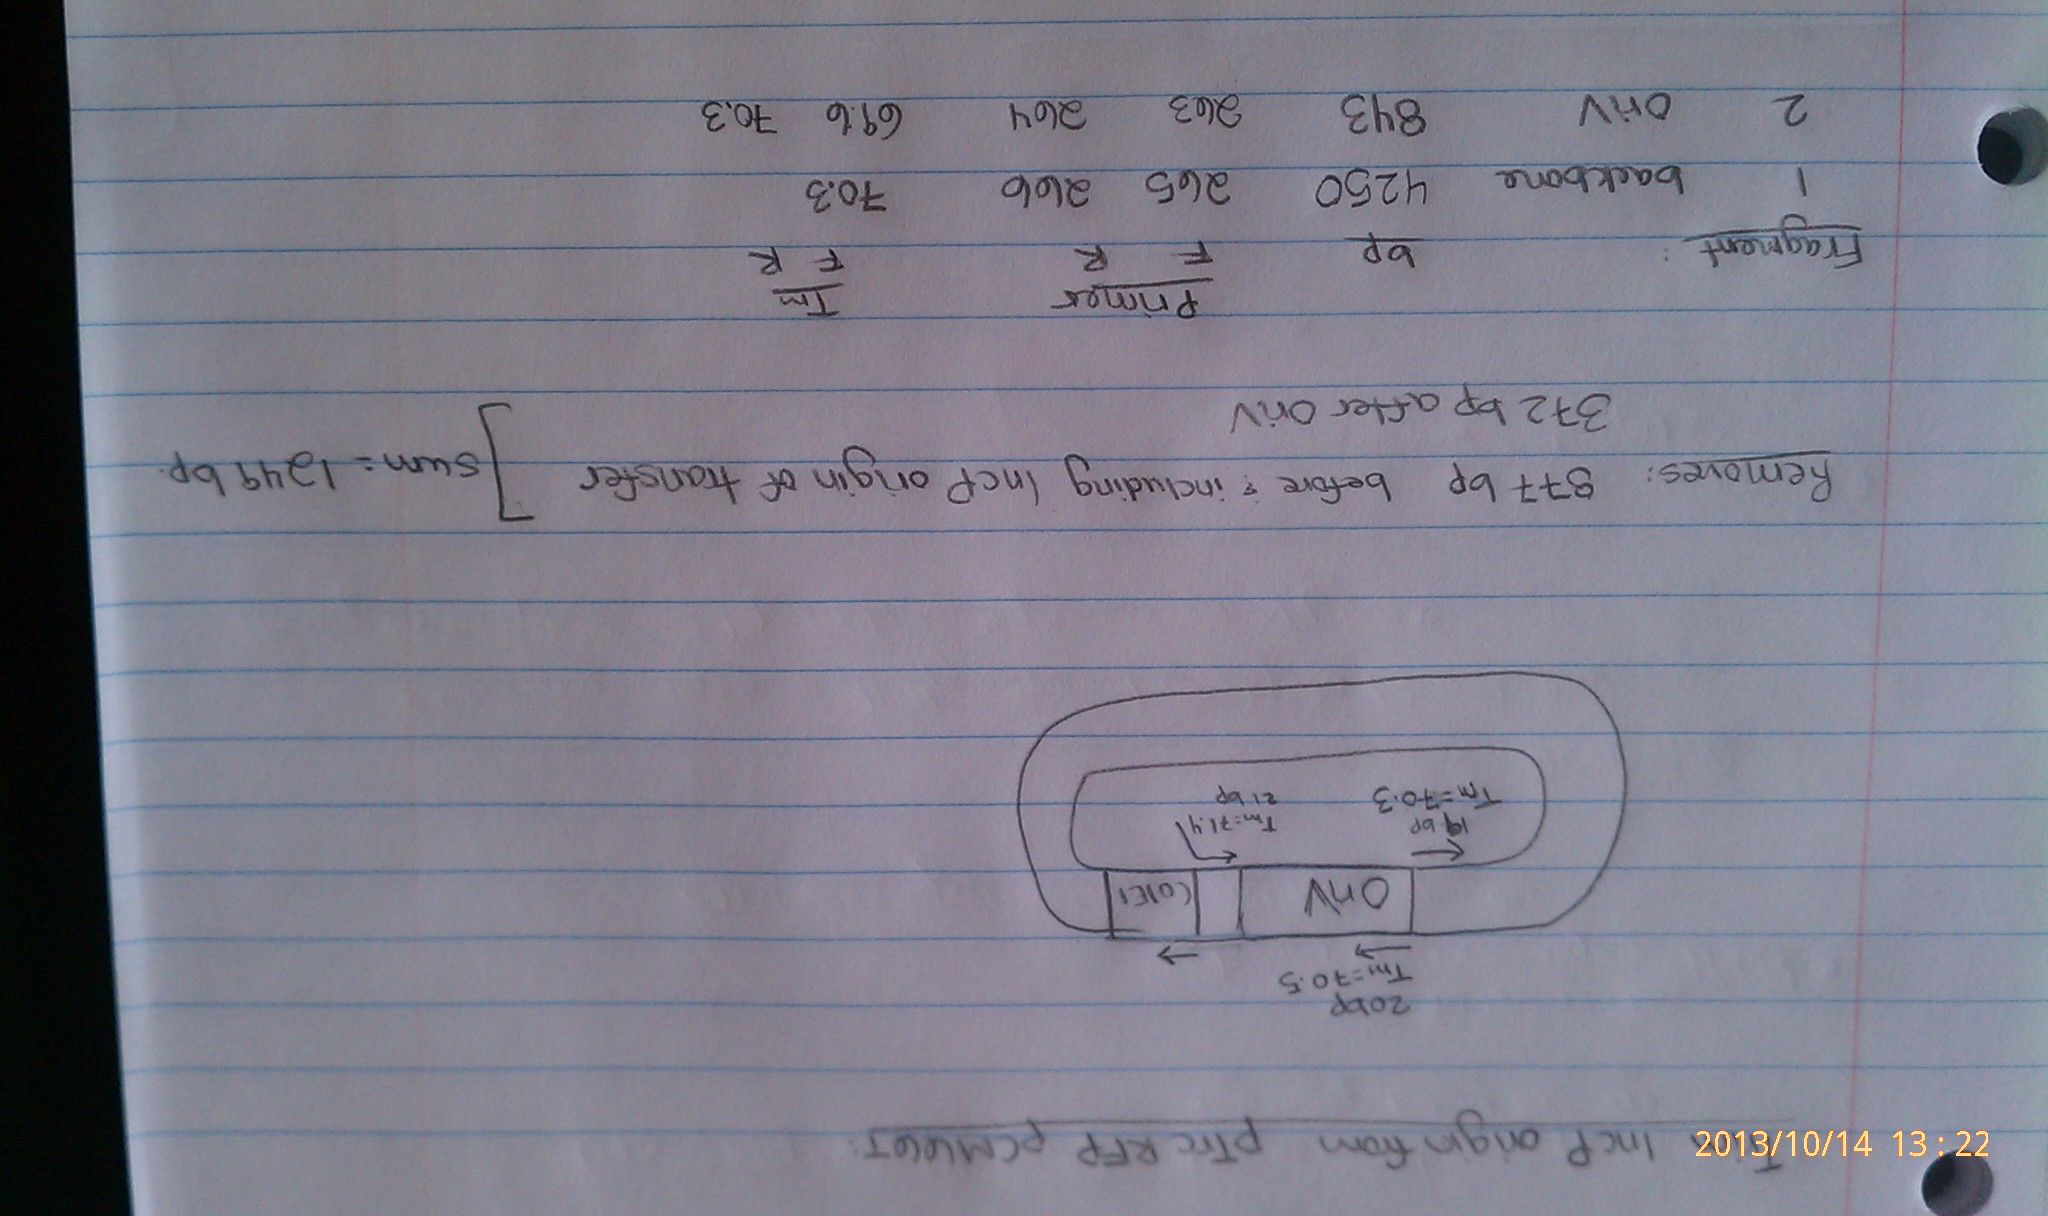 IncP origin from pTrc RFP pCM66T:
20bp
Tm=70.5
OriV
ColE1
19bp
Tm=70.3
Tm=71.4
21bp
Removes: 877 bp before & including IncP origin of transfer ] sum = 1249 bp.
372 bp after OriV
Primer Tm
Fragment: bp F R F R
1 backbone 4250 265 266 70.3
2 OriV 843 263 264 69.6 70.3
2013/10/14 13:22